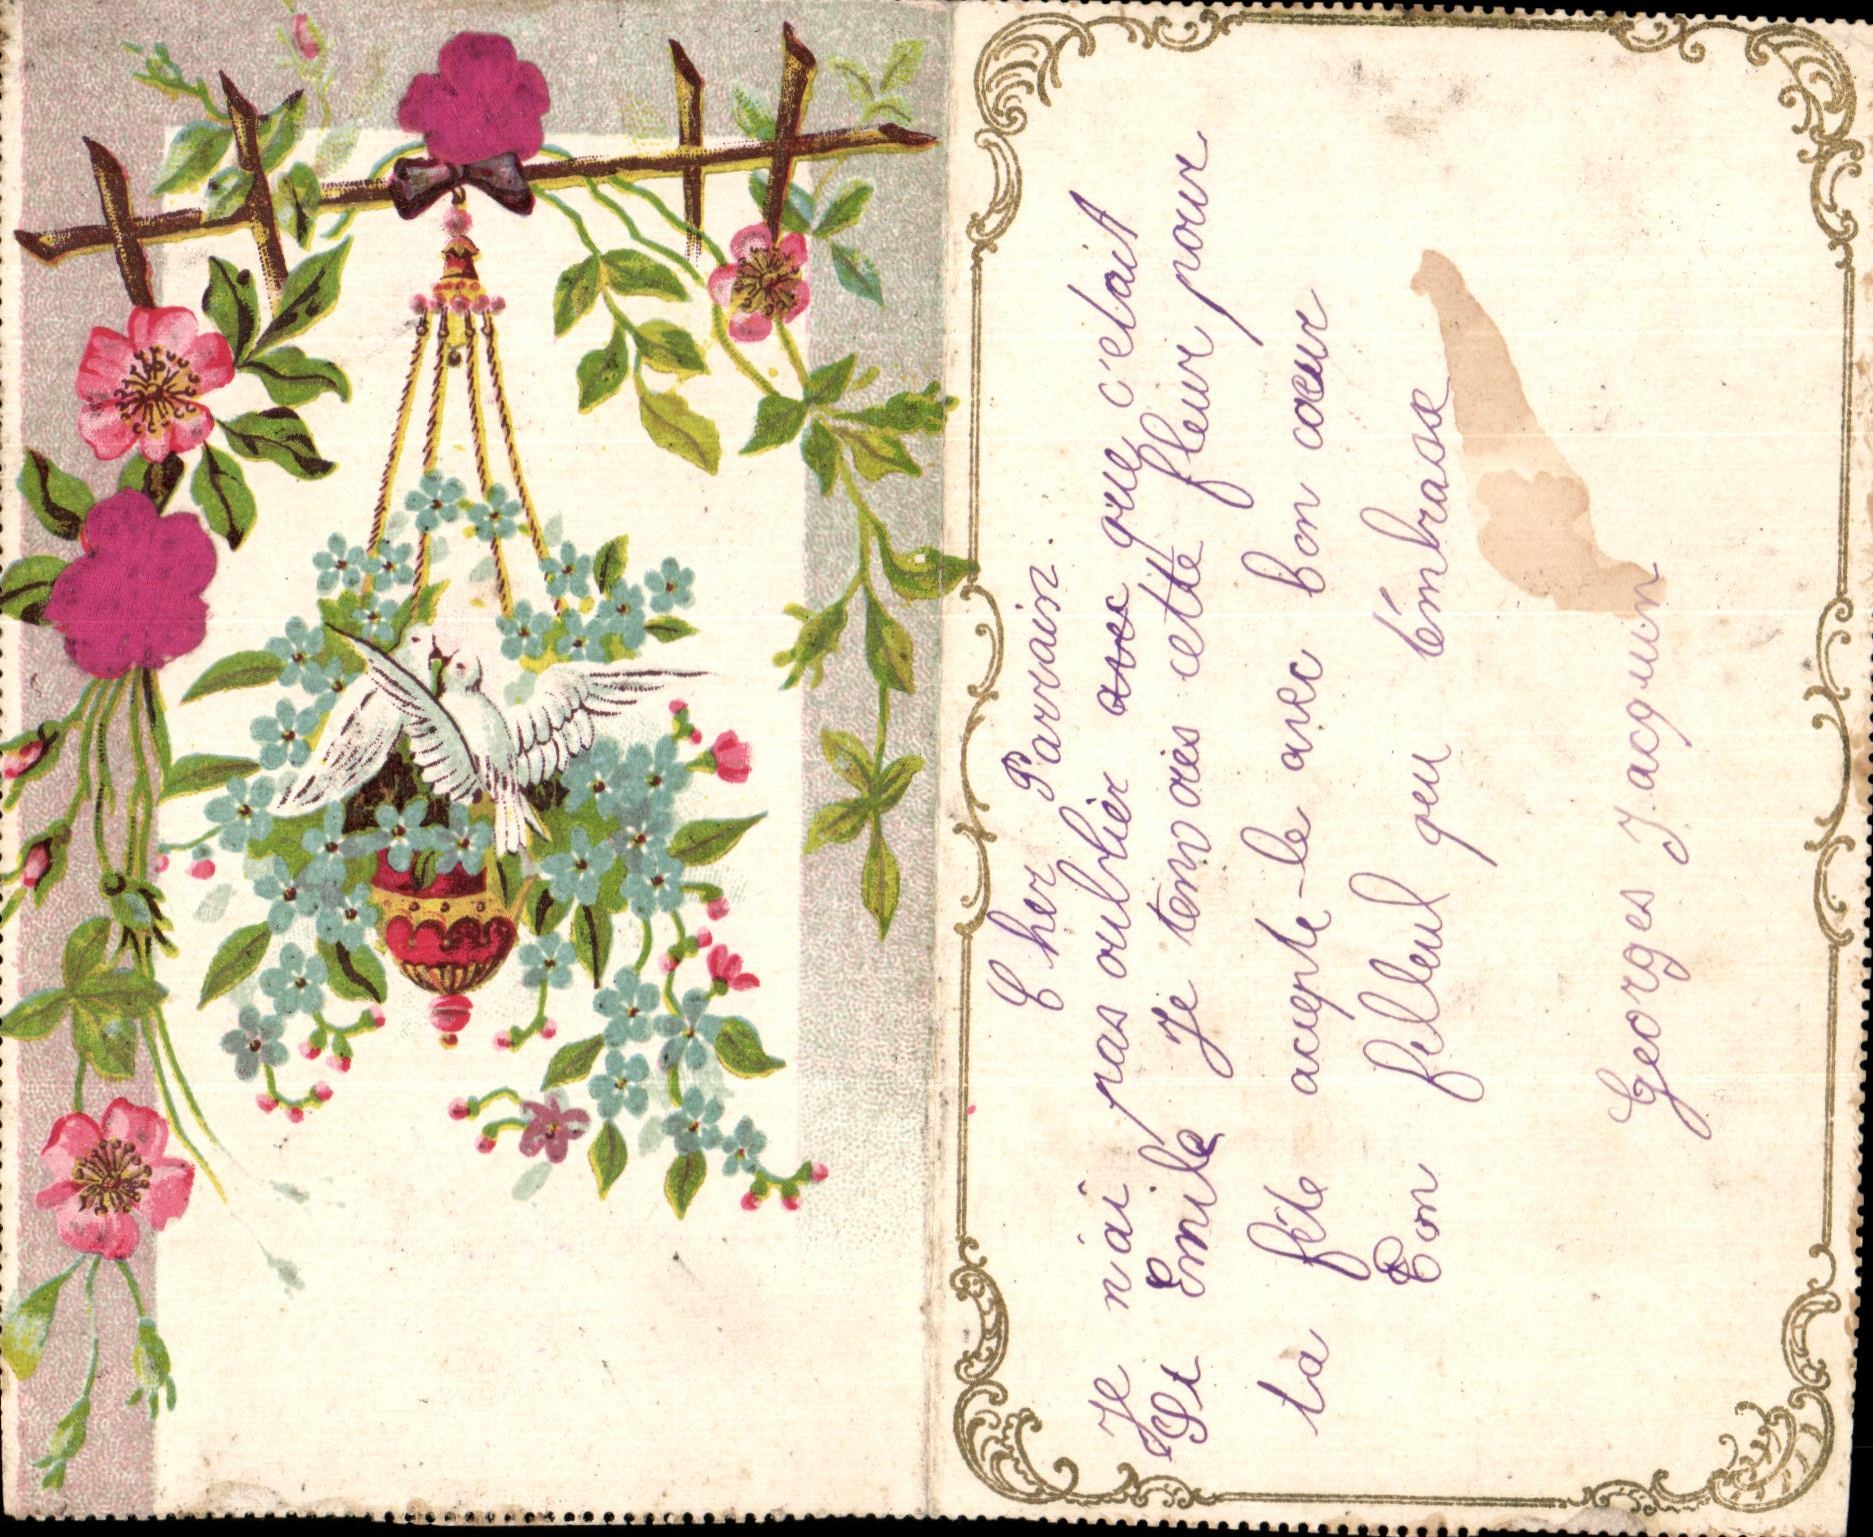 Cher Parrain.
Je n'ai pas oublier que c'etait
St Emile Je tenvoies cette fleur pour
ta fête accepte-le avec bon cœur
Ton filleul qui t'émbrasse
Georges Jacquin